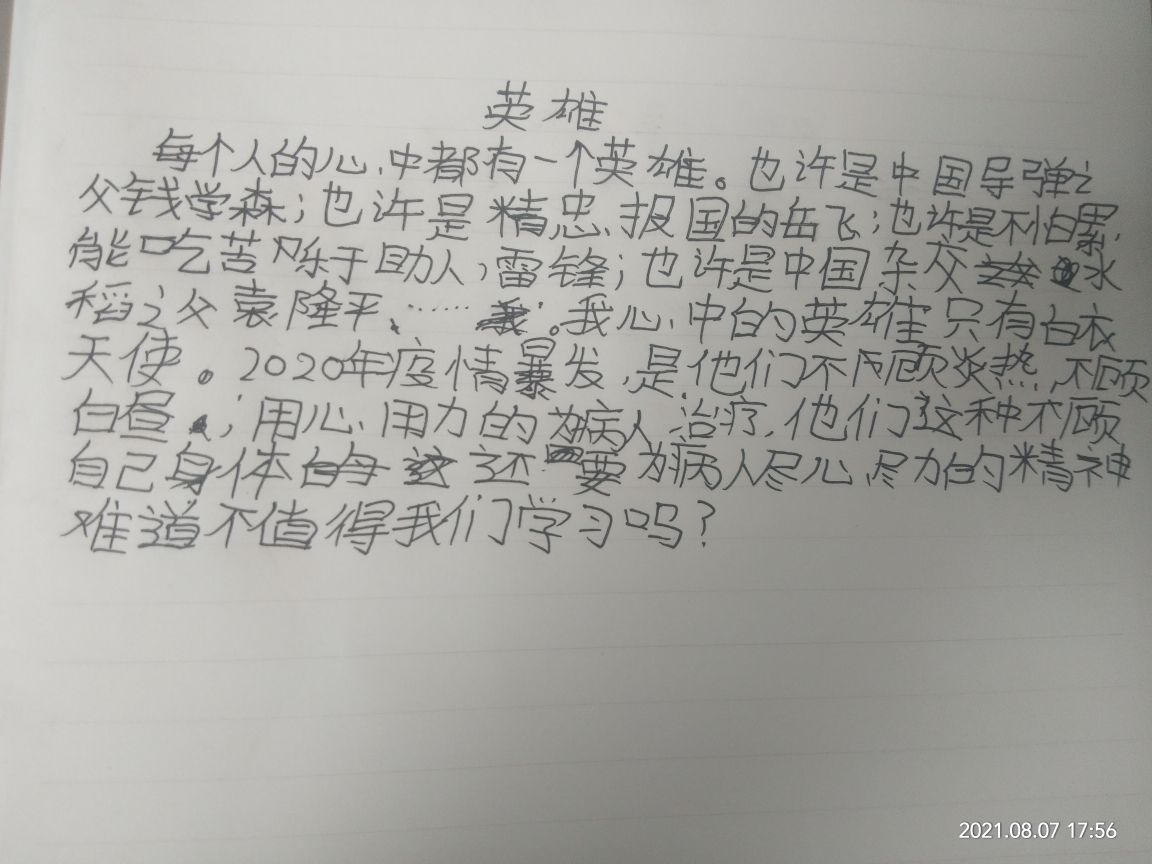 英雄
每个人的心中都有一个英雄。也许是中国导弹之
父钱学森；也许是精忠报国的岳飞；也许是不怕累，
能吃苦乐于助人，雷锋；也许是中国杂交水
稻之父袁隆平、……。我心中的英雄只有白衣
天使。2020年疫情暴发，是他们不顾炎热，不顾
白昼，；用心、用力的为病人治疗，他们这种不顾
自己身体还要为病人尽心尽力的精神
难道不值得我们学习吗？
2021.08.07 17:56